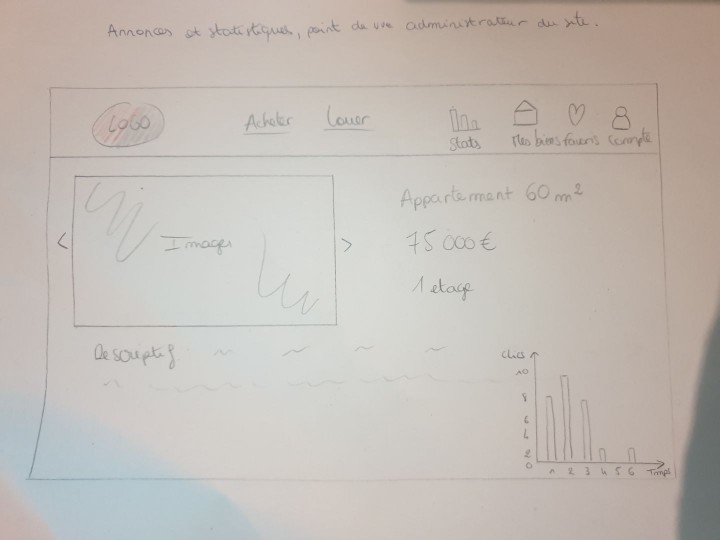 Annonces et statistiques, point de vue administrateur du site.
LOGO Acheter Louer Stats Mes biens favoris Compte
Appartement 60 m²
< Images > 75 000 €
1 etage
Descriptif
Clics
10
8
6
4
2
0
1 2 3 4 5 6 Temps